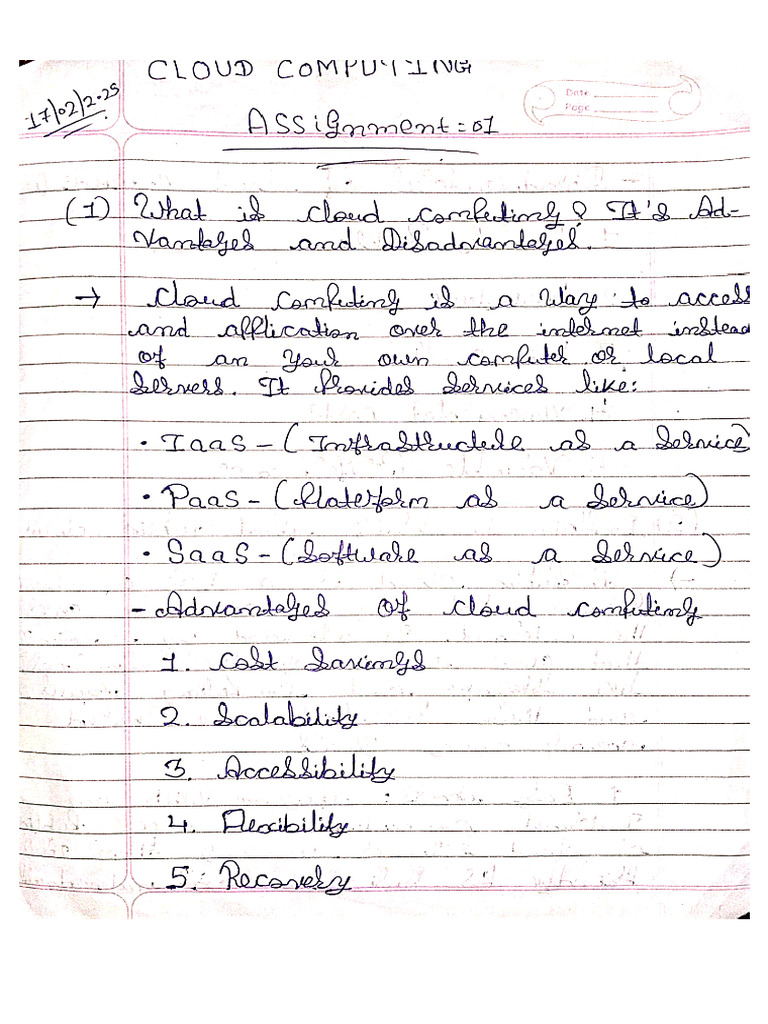 CLOUD COMPUTING
17/02/2025
Date
Page
Assignment = 01
(1) What is cloud computing? It's Ad-
vantages and Disadvantages.
→ Cloud computing is a way to access
and application over the internet instead
of an your own computer or local
servers. It provides services like:
• IaaS - (Infrastructure as a Service)
• PaaS - (Plateform as a Service)
• SaaS - (Software as a Service)
- Advantages of cloud computing
1. Cost Savings
2. Scalability
3. Accessibility
4. Flexibility
5. Recovery